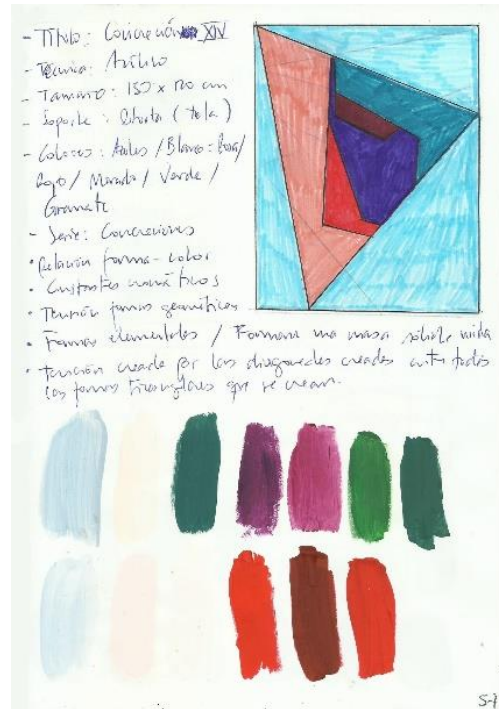 - Título: Concreción XIV
- Técnica: Acrílico
- Tamaño: 150 x 120 cm
- Soporte: (tela)
- Colores: Azules / Blanco-Rosa/
Rojo / Morado / Verde /
Granate
- Serie: Concreciones
• Relación forma-color
• Contrastes cromáticos
• Tensión formas geométricas
• Formas elementales / Forman una masa sólida unida
• Tensión creada por las diagonales creadas entre todas
las formas triangulares que se crean.